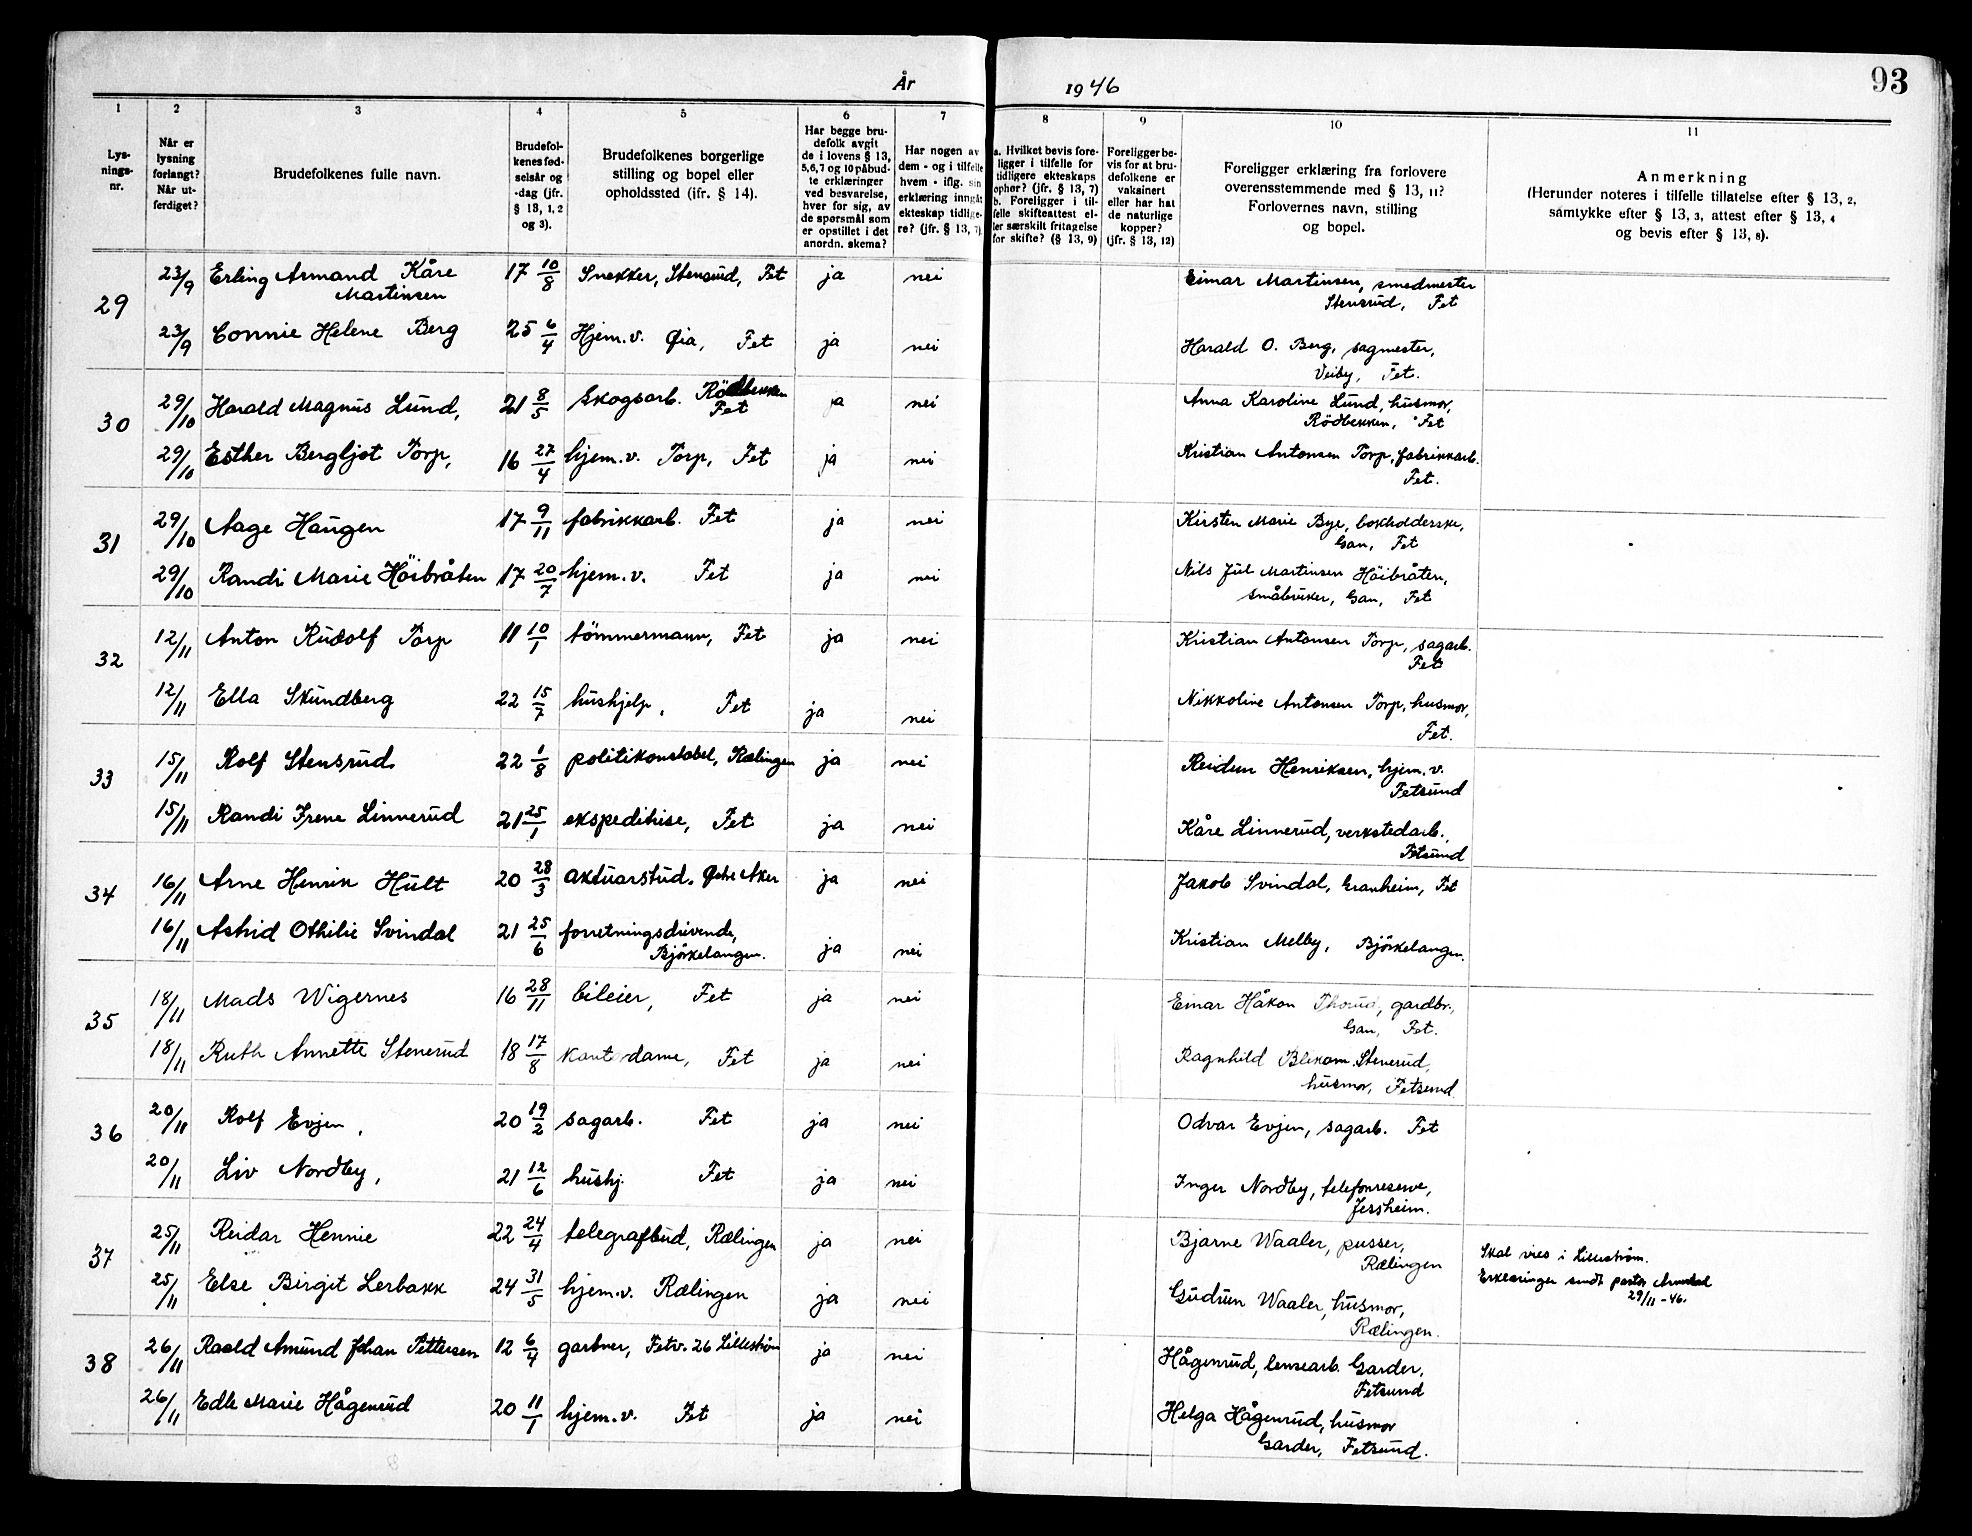 År 1946
93
1 2 3 4 5 6 7 8 9 10 11
Lys-
nings-
nr.
Når er
lysning
forlangt?
Når ut-
ferdiget?
Brudefolkenes fulle navn.
Brudefol-
kenes fød-
selsår og
-dag (jfr.
§ 13, 1, 2
og 3).
Brudefolkenes borgerlige
stilling og bopel eller
opholdssted (ifr. § 14).
Har begge bru-
defolk avgit
de i lovens § 13,
5,6,7 og 10 påbud-
te erklæringer
ved besvarelse,
hver for sig, av
de spørsmål som
er opstillet i det
anordn. skema?
Har nogen av
dem - og i tilfelle
hvem - iflg. sin
erklæring inngåt
ekteskap tidlige-
re? (jfr. § 13, 7).
a. Hvilket bevis fore-
ligger i tilfelle for
tidligere ekteskaps
ophør? (jfr. § 13, 7)
b. Foreligger i til-
felle skifteattest el-
ler særskilt fritagelse
for skifte? (§ 13, 9)
Foreligger be-
vis for at bru-
defolkene er
vaksinert
eller har hat
de naturlige
kopper?
(jfr. § 13, 12)
Foreligger erklæring fra forlovere
overensstemmende med § 13, 11?
Forlovernes navn, stilling
og bopel.
Anmerkning
(Herunder noteres i tilfelle tillatelse efter § 13, 2,
samtykke efter § 13, 3, attest efter § 13, 4
og bevis efter § 13, 8).
29
23/9 Erling Armand Kåre 17 10/8 Snekker, Stensrud, Fet ja nei Einar Martinsen, smedmester
Martinsen Stensrud, Fet
23/9 Connie Helene Berg 25 6/4 Hjem.v. Øia, Fet ja nei Harald O. Berg, sagmester,
Veiby, Fet.
30
29/10 Harald Magnus Lund, 21 8/5 Skogsarb. Rödbekken ja nei Anna Karoline Lund, husmor,
Fet Rödbekken, Fet
29/10 Esther Bergljot Torp, 16 27/4 hjem.v. Torp, Fet ja nei Kristian Antonsen Torp, fabrikkarb.
Fet.
31
29/10 Aage Haugen 17 9/11 fabrikkarb. Fet ja nei Kirsten Marie Bye, bokholderske,
Gan, Fet
29/10 Randi Marie Höibråten 17 20/7 hjem.v. Fet ja nei Nils Jul Martinsen Höibråten,
småbruker, Gan, Fet
32
12/11 Anton Rudolf Torp 11 10/1 tömmermann, Fet ja nei Kristian Antonsen Torp, sagarb.
Fet
12/11 Ella Skundberg 22 15/7 hushjelp, Fet ja nei Nikkoline Antonsen Torp, husmor,
Fet.
33
15/11 Rolf Stensrud 22 1/8 politikonstabel, Rælingen ja nei Reidun Henriksen, hjem.v.
Fetsund
15/11 Randi Irene Linnerud 21 25/1 ekspeditrise, Fet ja nei Kåre Linnerud, verkstedarb.
Fetsund
34
16/11 Arne Henrik Hult 20 28/3 aktuarstud. Østre Aker ja nei Jakob Svindal, Granheim, Fet
16/11 Astrid Othilie Svindal 21 25/6 forretningsdrivende, ja nei Kristian Melby, Björkelangen.
Björkelangen.
35
18/11 Mads Wigernes 16 28/11 bileier, Fet ja nei Einar Håkon Thorud, gardbr.,
Gan, Fet.
18/11 Ruth Annette Stenerud 18 17/8 kontordame, Fet ja nei Ragnhild Stenerud,
husmor, Fetsund
36
20/11 Rolf Evjen, 20 19/2 sagarb. Fet ja nei Odvar Evjen, sagarb. Fet
20/11 Liv Nordby, 21 12/6 hushj. Fet ja nei Inger Nordby, telefonreserve,
Jessheim.
37
25/11 Reidar Hennie 22 24/4 telegrafbud, Rælingen ja nei Bjarne Waaler, pusser,
Rælingen
Skal vies i Lilleström.
25/11 Else Birgit Lerbakk 24 31/5 hjem.v. Rælingen ja nei Gudrun Waaler, husmor,
Rælingen.
Erklæringer sendt pastor
29/11-46.
38
26/11 Roald Amund Johan Pettersen 12 6/4 gartner, Fetv. 26 Lilleström ja nei Hågenrud, lensearb. Garder,
Fetsund
26/11 Edle Marie Hågenrud 20 11/1 hjem.v. Fet ja nei Helga Hågenrud, husmor
Garder, Fetsund.